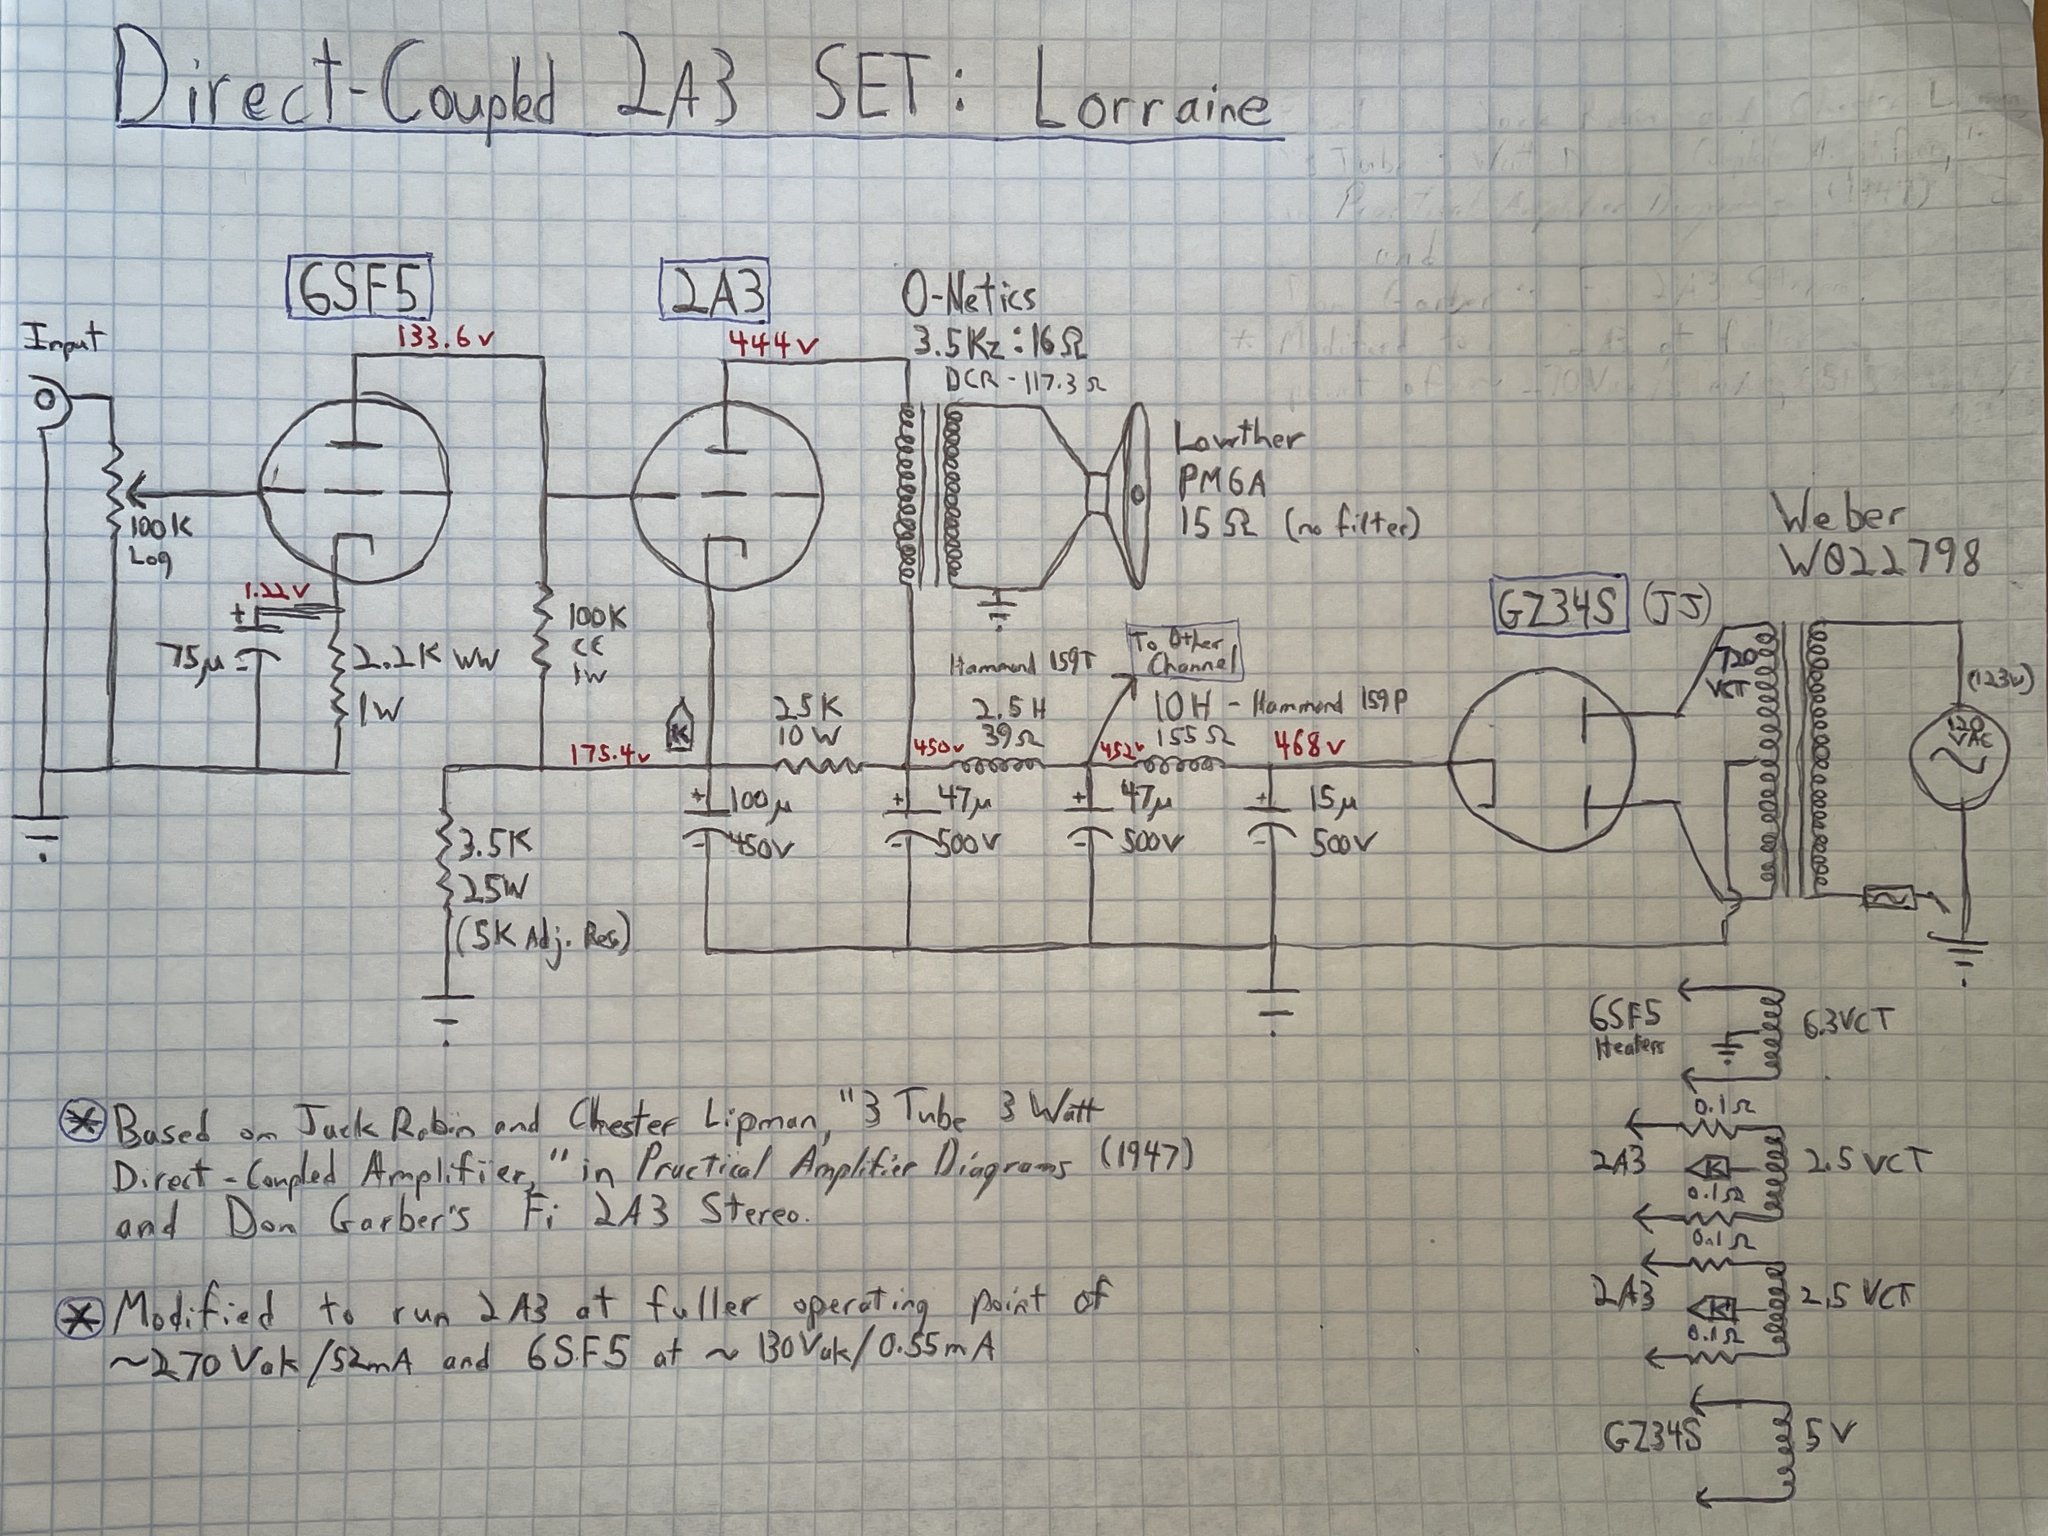 Direct-Coupled 2A3 SET: Lorraine
6SF5
2A3
O-Netics
3.5Kz:16Ω
DCR - 117.3Ω
Input
133.6v
444v
100K
Log
Lowther
PM6A
15Ω (no filter)
Weber
W022798
GZ34S (JJ)
1.22v
+
75μ
-
2.2K WW
1W
100K
CC
1W
K
25K
10W
Hammond 159T
2.5H
39Ω
To Other
Channel
10H - Hammond 159P
155Ω
720
VCT
(123v)
120
VAC
175.4v
450v
452v
468v
3.5K
25W
(5K Adj. Res)
+ 100μ
- 450V
+ 47μ
- 500V
+ 47μ
- 500V
+ 15μ
- 500V
6SF5
Heaters
6.3VCT
0.1Ω
2A3
K
2.5VCT
0.1Ω
0.1Ω
2A3
K
2.5VCT
0.1Ω
GZ34S
5V
* Based on Jack Robin and Chester Lipman, "3 Tube 3 Watt
Direct-Coupled Amplifier," in Practical Amplifier Diagrams (1947)
and Don Garber's Fi 2A3 Stereo.
* Modified to run 2A3 at fuller operating point of
~270Vak/52mA and 6SF5 at ~130Vak/0.55mA